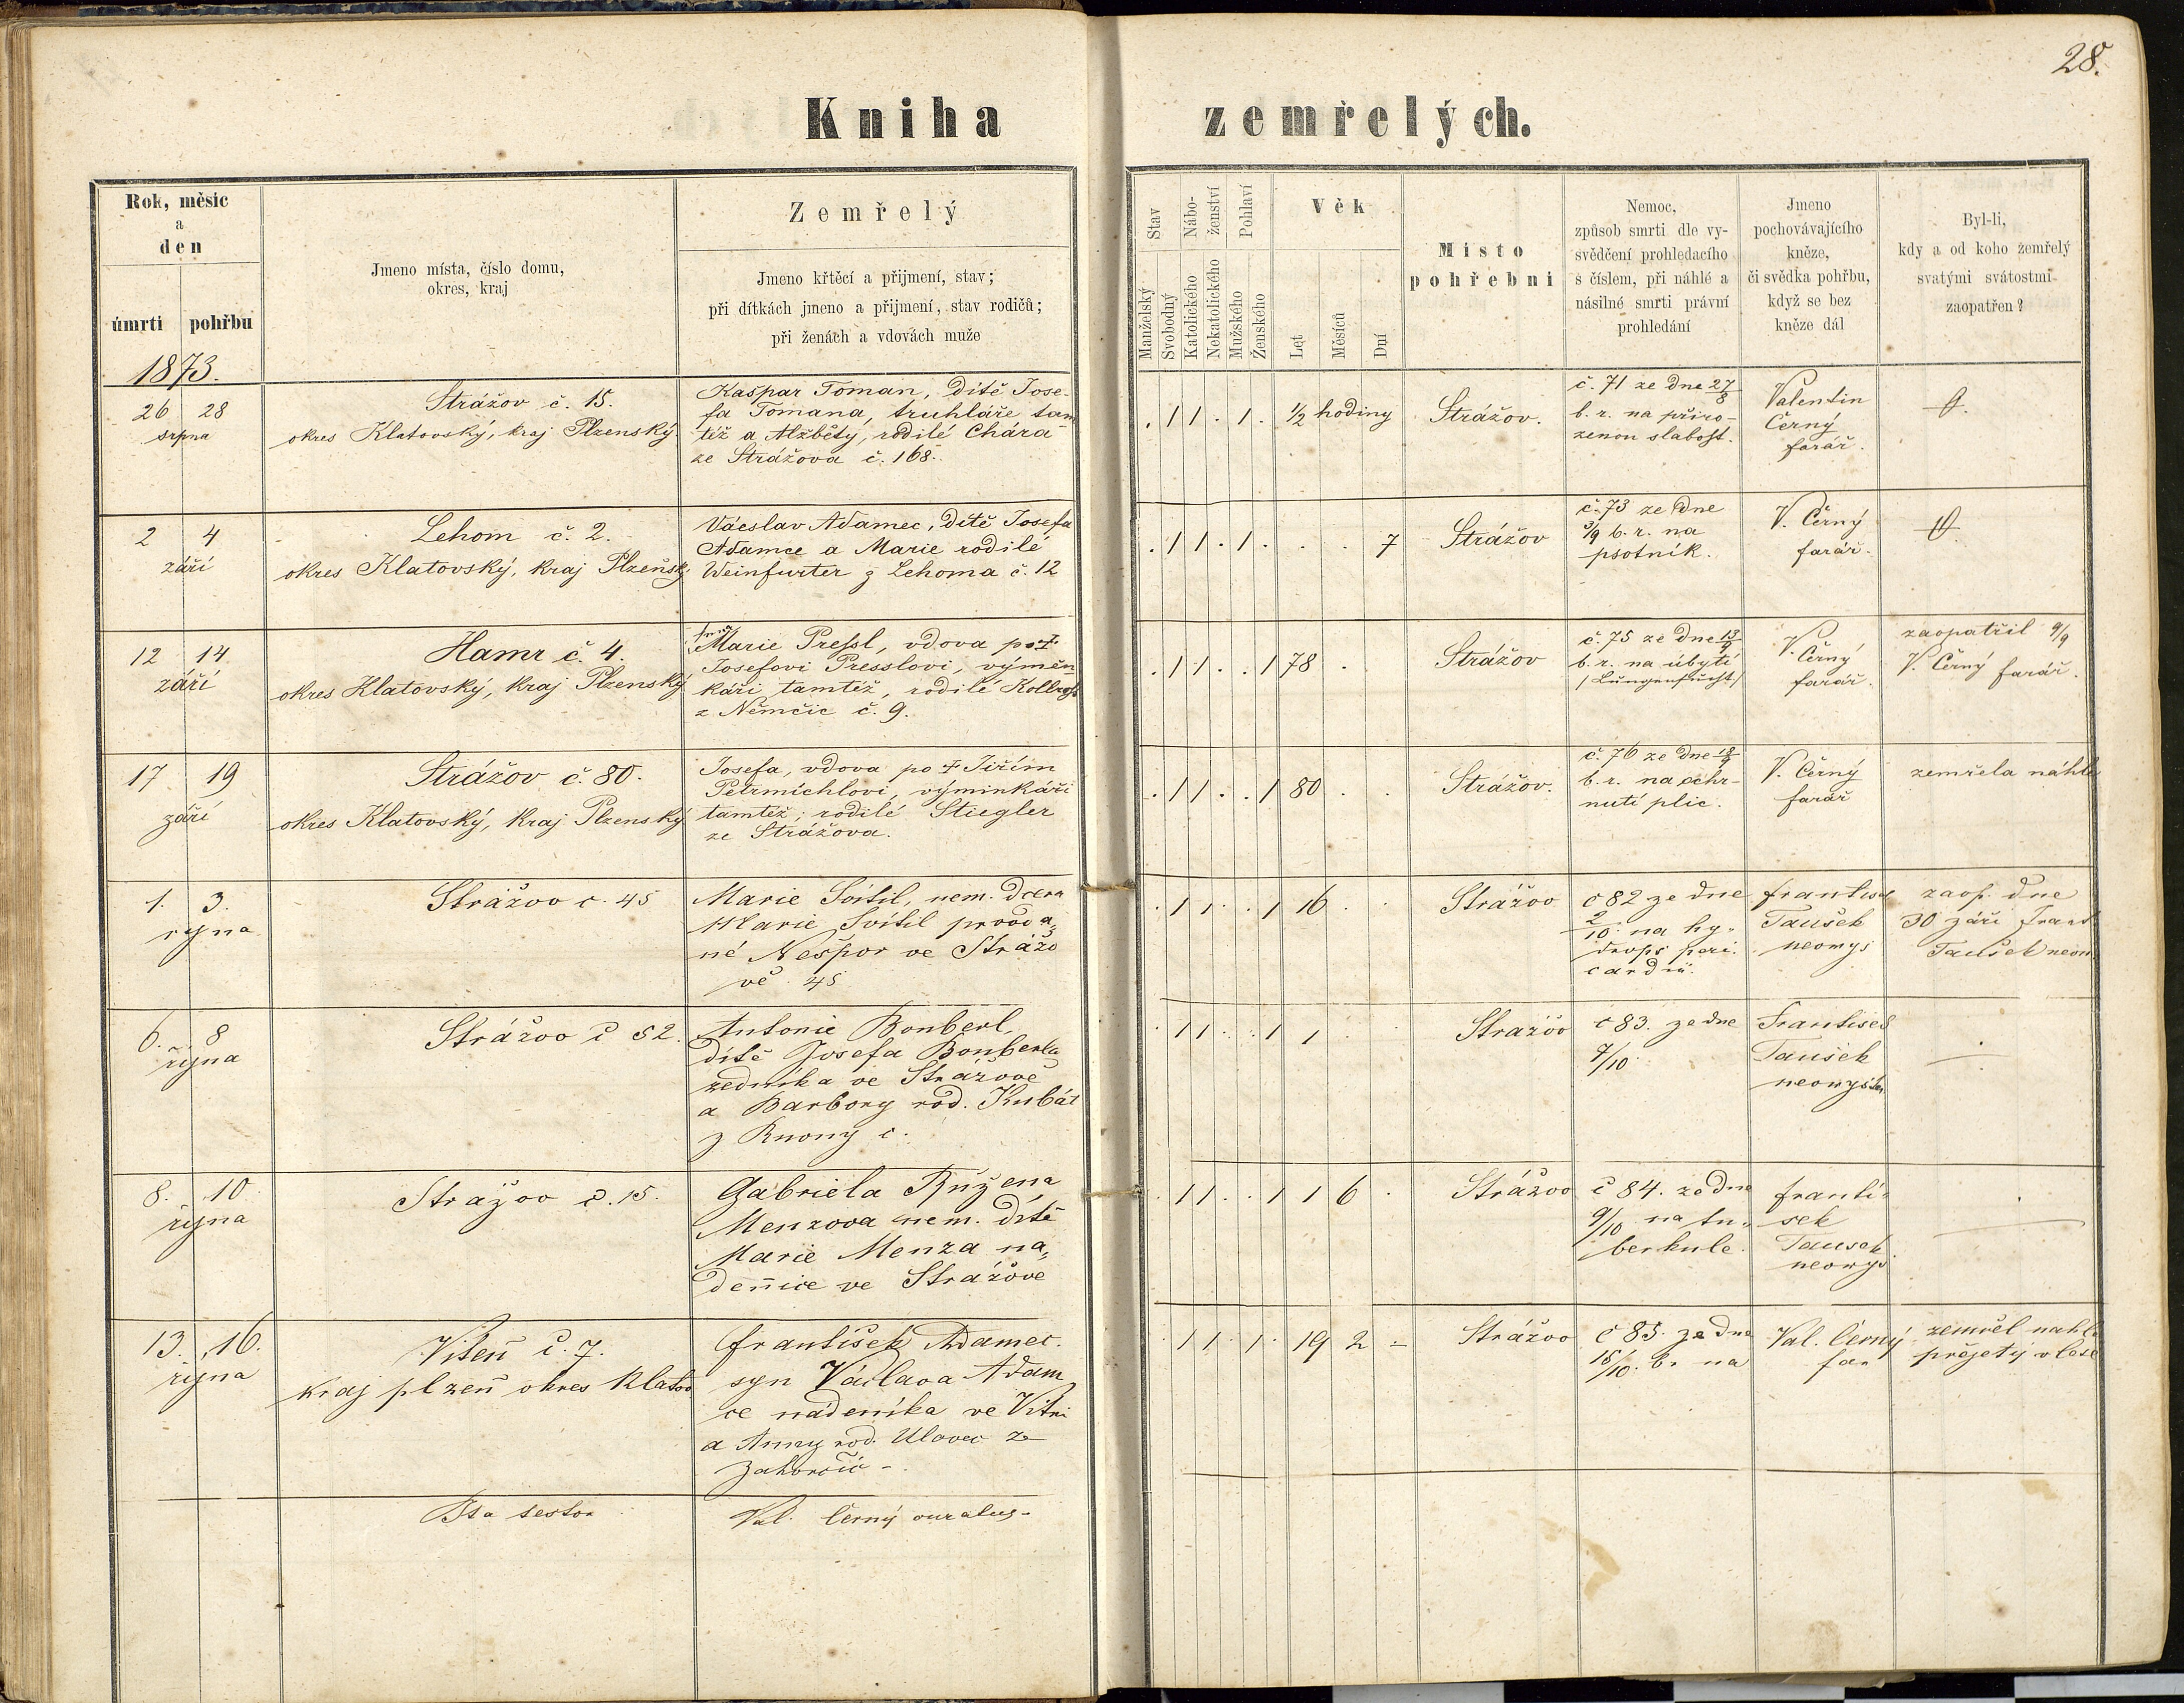 28.
Kniha zemřelých.
Rok, měsíc
a
den
úmrtí pohřbu
Jmeno místa, číslo domu,
okres, kraj
Zemřelý
Jmeno křtěcí a přijmení, stav;
při dítkách jmeno a přijmení, stav rodičů;
při ženách a vdovách muže
Stav
Manželský
Svobodný
Nábo-
ženství
Katolického
Nekatolického
Pohlaví
Mužského
Ženského
Věk
Let
Měsíců
Dní
Místo
pohřební
Nemoc,
způsob smrti dle vy-
svědčení prohledacího
s číslem, při náhlé a
násilné smrti právní
prohledání
Jmeno
pochovávajícího
kněze,
či svědka pohřbu,
když se bez
kněze dál
Byl-li,
kdy a od koho zemřelý
svatými svátostmi
zaopatřen?
1873.
26 28
srpna
Strážov č. 15.
okres Klatovský, kraj Plzenský.
Kašpar Toman, dítě Jose-
fa Tomana, truhláře tam
též a Alžběty, rodilé Chára
ze Strážova č. 168.
. 1 1 . 1 . ½ hodiny
Strážov.
č. 71 ze dne 27/8
b. r. na přiro-
zenou slabost.
Valentin
Černý
farář.
2 4
září
Lehom č. 2.
okres Klatovský, kraj Plzenský
Václav Adamec, dítě Josefa
Adamce a Marie rodilé
Weinfurter z Lehoma č. 12
. 1 1 . 1 . . . 7
Strážov
č. 73 ze dne
3/9 b. r. na
psotník.
V. Černý
farář.
12 14
září
Hamr č. 4.
okres Klatovský, kraj Plzenský
Marie Pressl, vdova po †
Josefovi Presslovi, výměn
káři tamtéž, rodilé Kollross
z Němčic č. 9.
. 1 1 . . 1 78 .
Strážov
č. 75 ze dne 13/9
b. r. na úbytí
/Lungensucht/
V. Černý
farář.
zaopatřil 9/9
V. Černý farář.
17 19
září
Strážov č. 80.
okres Klatovský, Kraj Plzenský
Josefa, vdova po † Jiřím
Petrmichlovi, výminkáři
tamtéž; rodilé Stiegler
ze Strážova.
. 1 1 . . 1 80 . .
Strážov.
č. 76 ze dne 18/9
b. r. na ochr-
nutí plic.
V. Černý
farář
zemřela náhle
1. 3.
října
Strážov č. 45
Marie Svítil, nem. dcera
Marie Svítil provda„
né Nešpor ve Strážo
vě 45
. 1 1 . . 1 16 . .
Strážov
č 82 ze dne
2/10 na hy„
drops peri.
cardii.
František
Taušek
neomys
zaop. dne
30 září Frant
Taušek neom
6. 8
října
Strážov č 52.
Antonie Bonberl,
dítě Josefa Bonberla
zedníka ve Strážově
a Barbory rod. Kubát
z č.
. 1 1 . . 1 1 .
Strážov
č 83. ze dne
7/10
František
Taušek
neomyslen
8. 10
října
Strážov č. 15.
Gabriela Růžena
Menzova nem. dítě
Marie Menza ná„
denice ve Strážově
. 1 1 . . 1 1 6 .
Strážov
č 84. ze dne
9/10 na tu„
berkule.
Franti„
šek
Taušek
neomys
13. 16.
října
Viteň č. 7.
kraj plzeň okres Klatov
František Adamec.
syn Václava Adam
ce nádeníka ve Vitni
a Anny rod. Ulovec z
Zahorčic -
. 1 1 . 1 . 19 2 -
Strážov
č 85. ze dne
15/10 b. r na
Val. Černý
far
zemřel náhle
přejetý v lese
Ita testor
Val. Černý curatus.